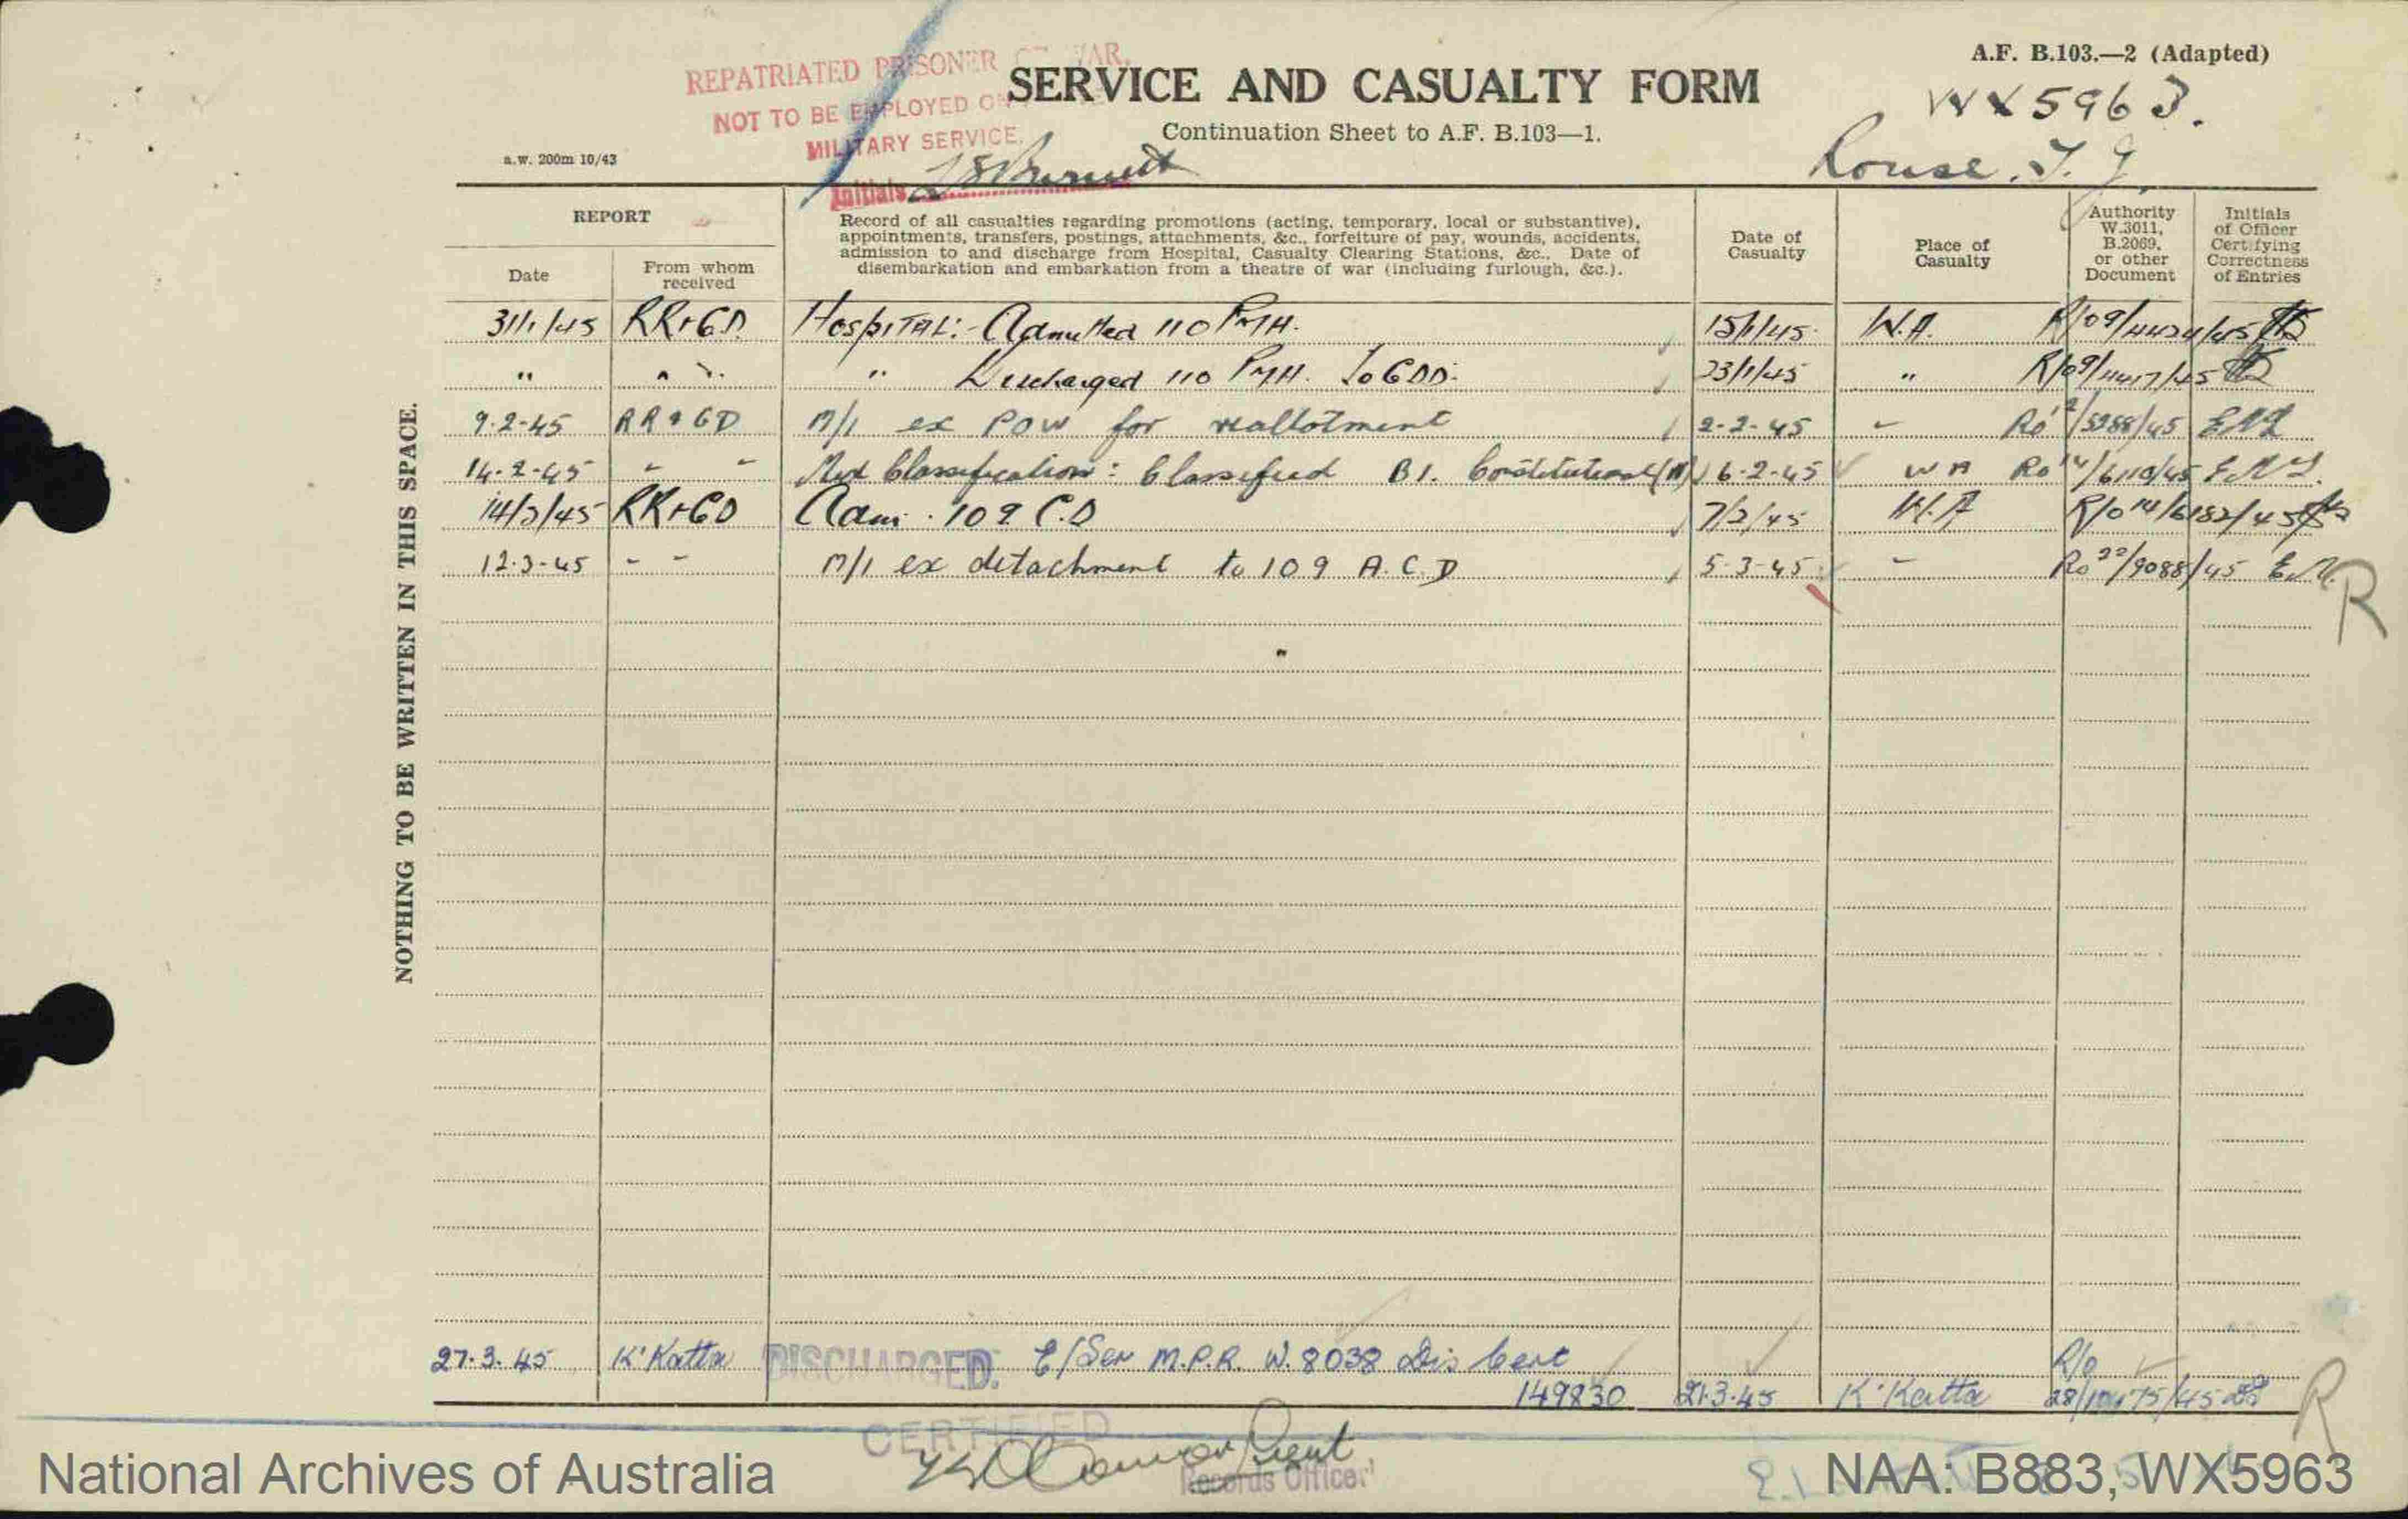 A.F. B.103.—2 (Adapted)
REPATRIATED PRISONER OF WAR.
NOT TO BE EMPLOYED ON
MILITARY SERVICE.
Initials
SERVICE AND CASUALTY FORM
Continuation Sheet to A.F. B.103—1.
WX5963.
Rouse. T. G.
a.w. 200m 10/43
REPORT
Date
From whom received
Record of all casualties regarding promotions (acting, temporary, local or substantive),
appointments, transfers, postings, attachments, &c., forfeiture of pay, wounds, accidents,
admission to and discharge from Hospital, Casualty Clearing Stations, &c. Date of
disembarkation and embarkation from a theatre of war (including furlough, &c.).
Date of Casualty
Place of Casualty
Authority W.3011, B.2069, or other Document
Initials of Officer Certifying Correctness of Entries
31/1/45 RR+GD Hospital:- Admitted 110 PMH. 15/1/45 W.A. R/O9/4434/45
" " " Discharged 110 PMH. To GDD. 23/1/45 " R/O9/4417/45
9.2.45 RR & GD M/I ex POW for reallotment 2-2-45 " Ro /5288/45
14.2.45 " " Med Classification: Classified B1. Constitutional 6-2-45 W A Ro 14/6110/45
14/2/45 RR+GD Adm. 109 C.D 7/2/45 W.A R/O 14/6182/45
12.3.45 " " M/I ex detachment to 109 A.C.D 5-3-45 " Ro 22/9088/45
R
NOTHING TO BE WRITTEN IN THIS SPACE.
27.3.45 K'Katta DISCHARGED. M.P.R. W.8038 Dis Cert R/o
149830 21.3.45 K'Katta 28/10475/45
R
CERTIFIED
Records Officer
National Archives of Australia
NAA: B883, WX5963